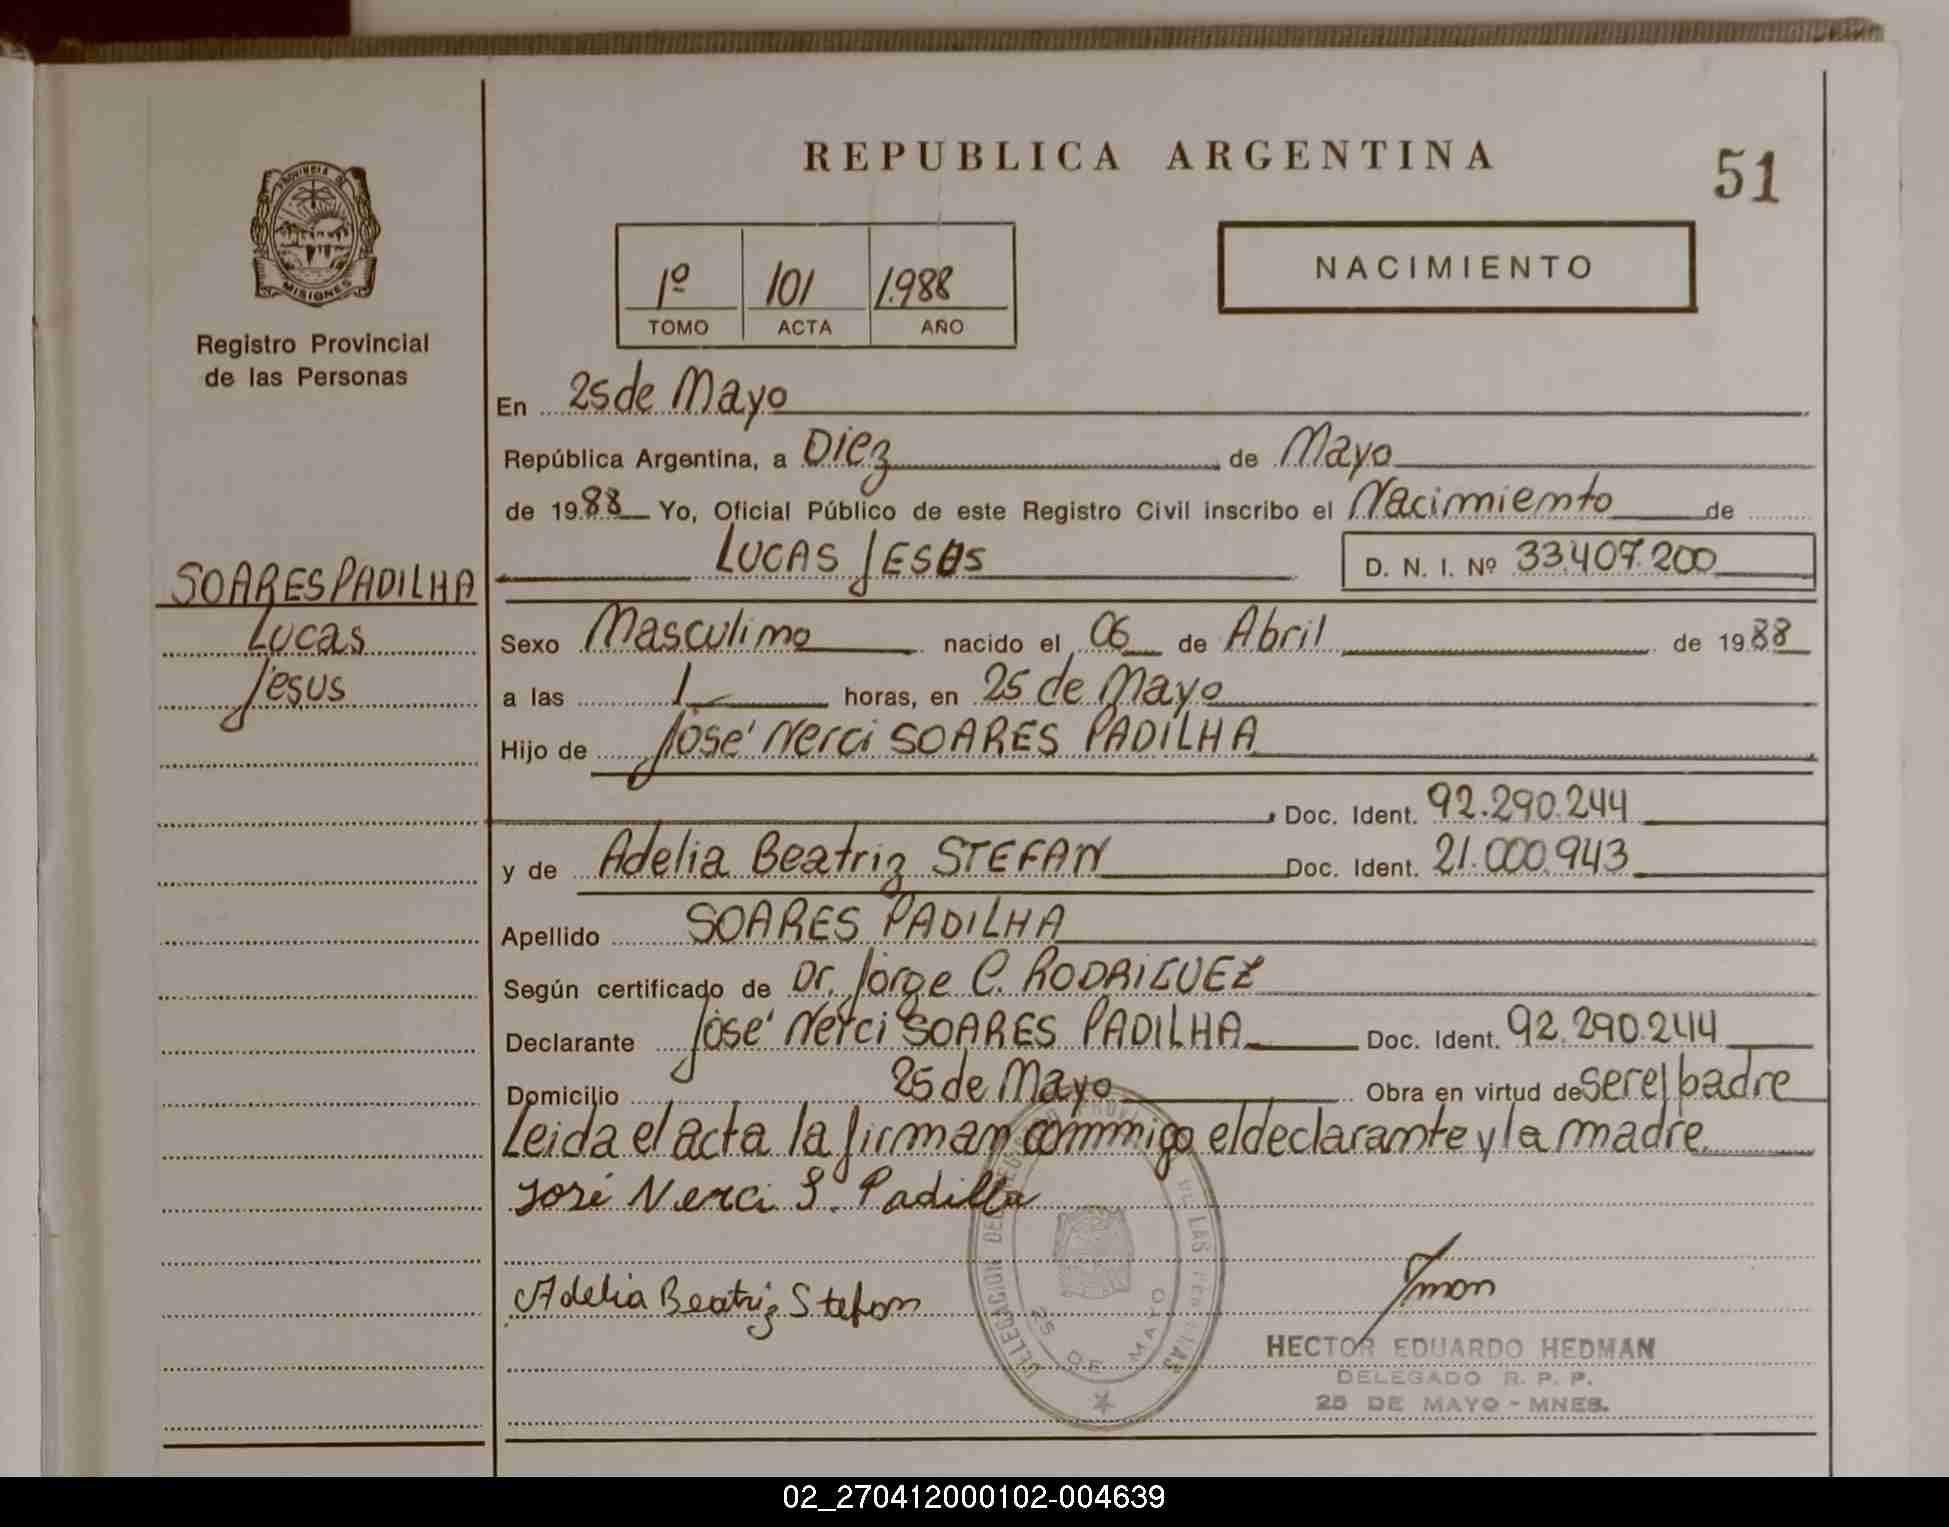 REPUBLICA ARGENTINA
51
PROVINCIA DE
MISIONES
Registro Provincial
de las Personas
1º 101 1.988
TOMO ACTA AÑO
NACIMIENTO
En 25 de Mayo
República Argentina, a Diez de Mayo
de 1988 Yo, Oficial Público de este Registro Civil inscribo el Nacimiento de
LUCAS JESUS D. N. I. Nº 33.407.200
SOARES PADILHA
Lucas
Jesus
Sexo Masculino nacido el 06 de Abril de 1988
a las 1 horas, en 25 de Mayo
Hijo de José Nerci SOARES PADILHA
Doc. Ident. 92.290.244
y de Adelia Beatriz STEFAN Doc. Ident. 21.000.943
Apellido SOARES PADILHA
Según certificado de Dr. Jorge C. RODRIGUEZ
Declarante José Nerci SOARES PADILHA Doc. Ident. 92.290.244
Domicilio 25 de Mayo Obra en virtud de ser el padre
Leida el acta la firman conmigo el declarante y la madre.
José Nerci S. Padilla
Adelia Beatriz Stefan
DELEGACION DEL REGISTRO PROVI DE LAS PERSONAS
25 DE MAYO
HECTOR EDUARDO HEDMAN
DELEGADO R. P. P.
25 DE MAYO - MNES.
02_270412000102-004639